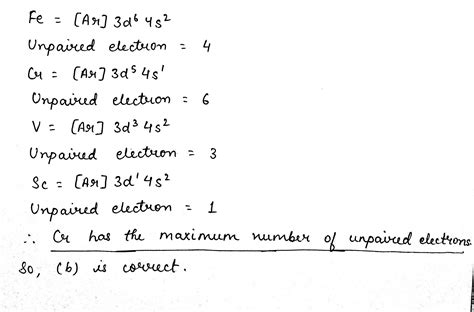 Fe = [Ar] 3d⁶ 4s²
Unpaired electron = 4
Cr = [Ar] 3d⁵ 4s¹
Unpaired electron = 6
V = [Ar] 3d³ 4s²
Unpaired electron = 3
Sc = [Ar] 3d¹ 4s²
Unpaired electron = 1
∴ Cr has the maximum number of unpaired electrons.
So, (b) is correct.